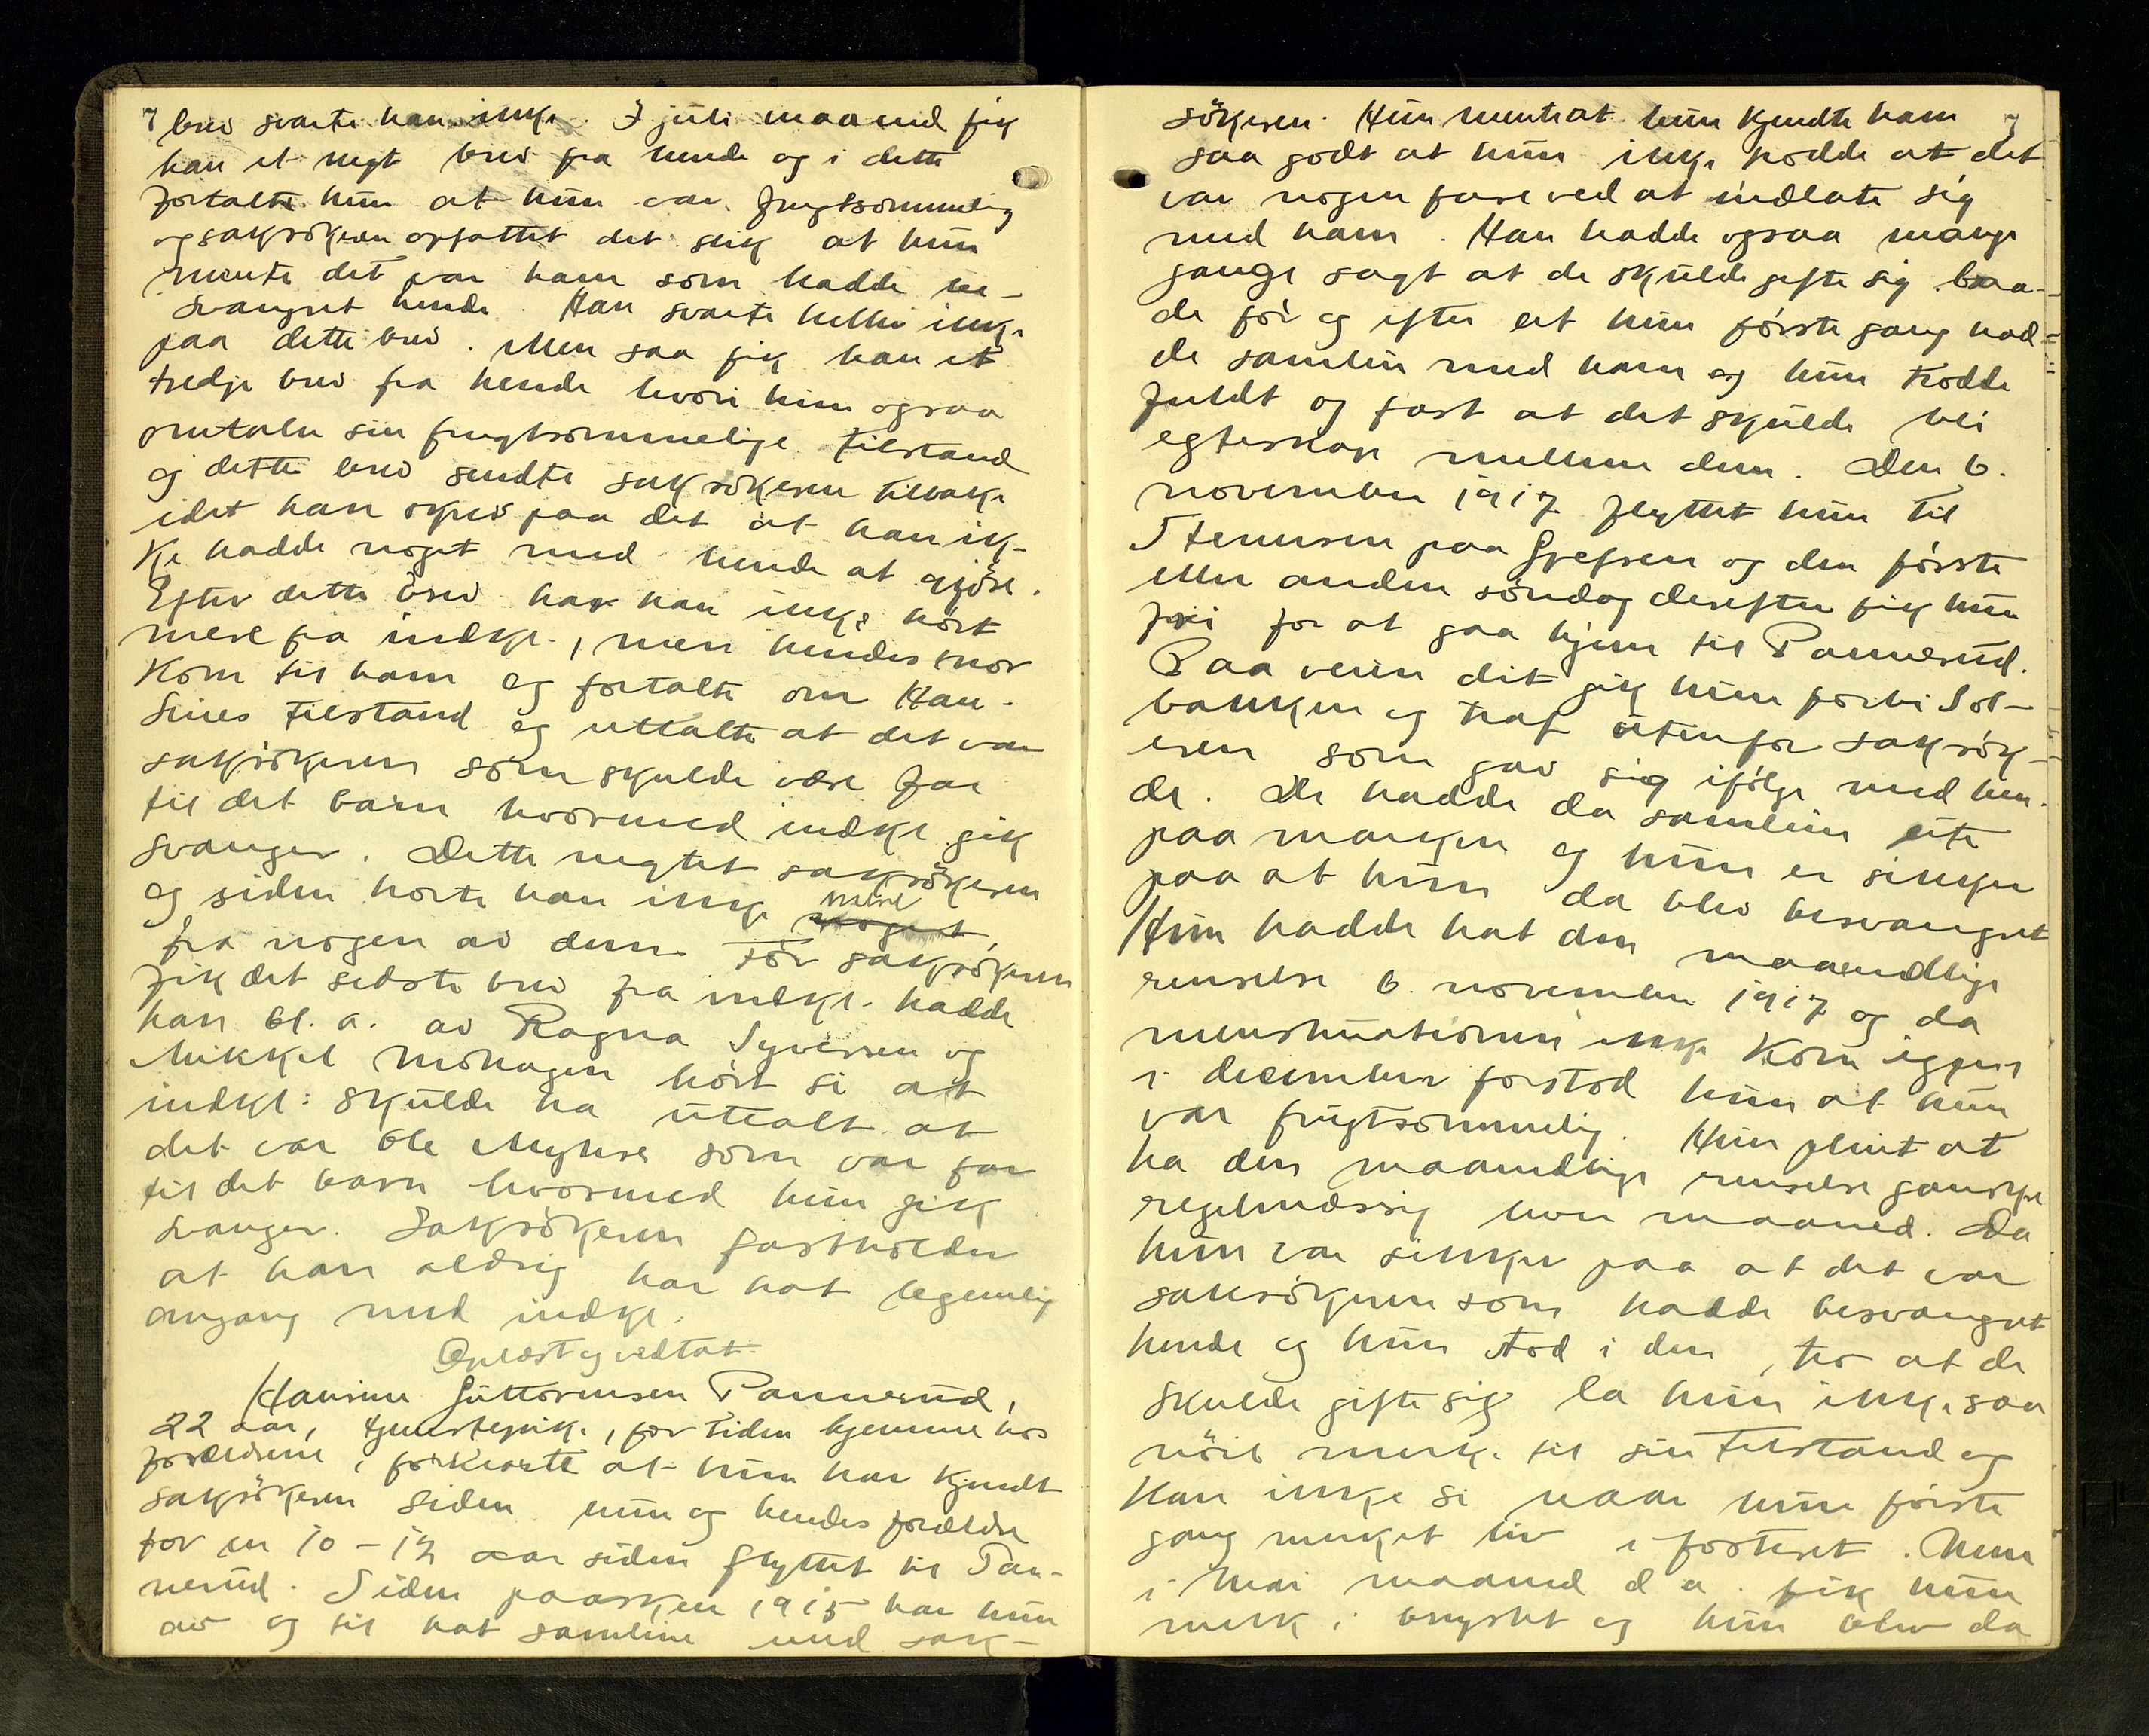 brev svarte han ikke. I juli maaned fik
han et nyt brev fra hende og i dette
fortalte hun at hun var frugtsommelig
og saksøkeren opfattet det slik at hun
mente det var ham som hadde be-
svangret hende. Han svarte heller ikke
paa dette brev. Men saa fik han et
tredje brev fra hende hvori hun ogsaa
omtaler sin frugtsommelige tilstand
og dette brev sendte saksøkeren tilbake
idet han skrev paa det at han ik-
ke hadde noget med hende at gjøre.
Efter dette brev har han ikke hørt
mere fra indkl., men hendes mor
kom til ham og fortalte om Han-
sines tilstand og uttalte at det var
saksøkeren som skulde være far
til det barn hvormed indkl gik
svanger. Dette negtet saksøkeren
og siden hørte han ikke mere noget
fra nogen av dem. Før saksøkeren
fik det sidste brev fra indkl. hadde
han bl. a. av Ragna Syversen og
Mikkel Mohagen hørt si at
indkl: skulde ha uttalt at
det var Ole Myhre som var far
til det barn hvormed hun gik
svanger. Saksøkeren fastholder
at han aldrig har hat legemlig
omgang med indkl.
Oplæst og vedtat.
Hansine Guttormsen Pannerud,
22 aar, tjenestepike, for tiden hjemme hos
forældrene, forklarte at hun har kjendt
saksøkeren siden hun og hendes forældre
for en 10 - 12 aar siden flyttet til Pan-
nerud. Siden paasken 1915 har hun
av og til hat samleie med sak-
søkeren. Hun mente at hun kjendte ham
saa godt at hun ikke trodde at det
var nogen fare ved at indlate sig
med ham. Han hadde ogsaa mange
gange sagt at de skulde gifte sig baa-
de før og efter at hun første gang had-
de samleie med ham og hun trodde
fuldt og fast at det skulde bli
egteskap mellem dem. Den 6.
november 1917 flyttet hun til
Stenersen paa Grefsen og den første
eller anden søndag derefter fik hun
fri for at gaa hjem til Pannerud.
Paa veien dit gik hun forbi Sol-
bakken og traf utenfor saksøk-
eren som gav sig ifølge med hen-
de. De hadde da samleie ute
paa marken og hun er sikker
paa at hun da blev besvangret
Hun hadde hat den maanedlige
renselse 6. november 1917 og da
menstruationen ikke kom igjen
i december forstod hun at hun
var frugtsommelig. Hun pleiet at
ha den maanedlige renselse ganske
regelmæssig hver maaned. Da
hun var sikker paa at det var
saksøkeren som hadde besvangret
hende og hun stod i den tro at de
skulde gifte sig la hun ikke saa
nøie merke til sin tilstand og
kan ikke si naar hun første
gang merket liv i fosteret. Men
i mai maaned d. a. fik hun
merk i brystet og hun blev da